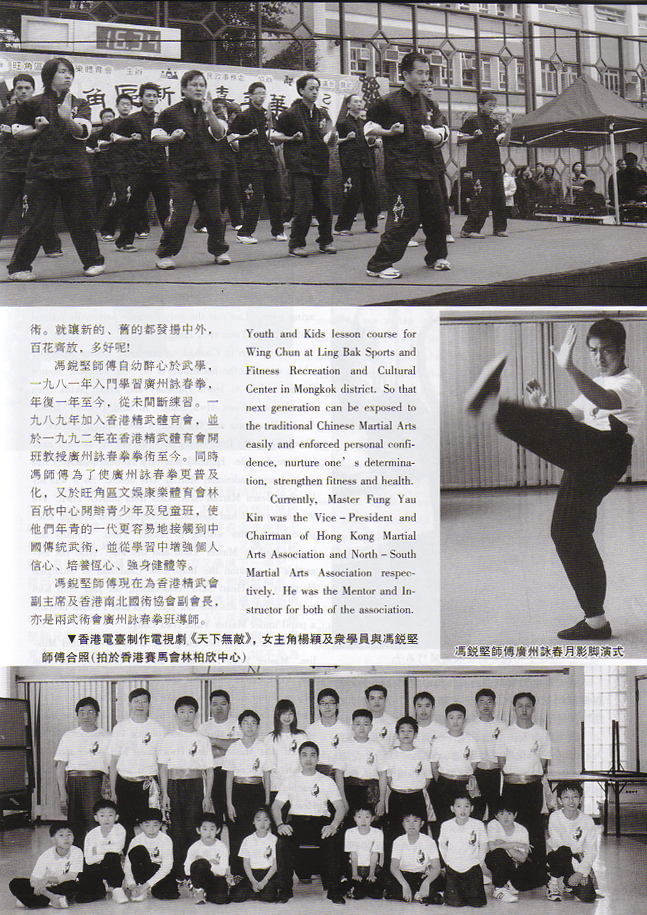 16.34
術。就讓新的、舊的都發揚中外，
百花齊放，多好呢！
馮銳堅師傅自幼醉心於武學，
一九八一年入門學習廣州詠春拳，
年復一年至今，從未間斷練習。一
九八九年加入香港精武體育會，並
於一九九二年在香港精武體育會開
班教授廣州詠春拳拳術至今。同時
馮師傅為了使廣州詠春拳更普及
化，又於旺角區文娛康樂體育會林
百欣中心開辦青少年及兒童班，使
他們年青的一代更容易地接觸到中
國傳統武術，並從學習中增強個人
信心、培養恆心、強身健體等。
馮銳堅師傅現在為香港精武會
副主席及香港南北國術協會副會長，
亦是兩武術會廣州詠春拳班導師。
Youth and Kids lesson course for
Wing Chun at Ling Bak Sports and
Fitness Recreation and Cultural
Center in Mongkok district. So that
next generation can be exposed to
the traditional Chinese Martial Arts
easily and enforced personal confi-
dence, nurture one's determina-
tion, strengthen fitness and health.
Currently, Master Fung Yau
Kin was the Vice – President and
Chairman of Hong Kong Martial
Arts Association and North – South
Martial Arts Association respec-
tively. He was the Mentor and In-
structor for both of the association.
馮銳堅師傅廣州詠春月影脚演式
▼香港電臺制作電視劇《天下無敵》，女主角楊穎及衆學員與馮銳堅
師傅合照(拍於香港賽馬會林柏欣中心)